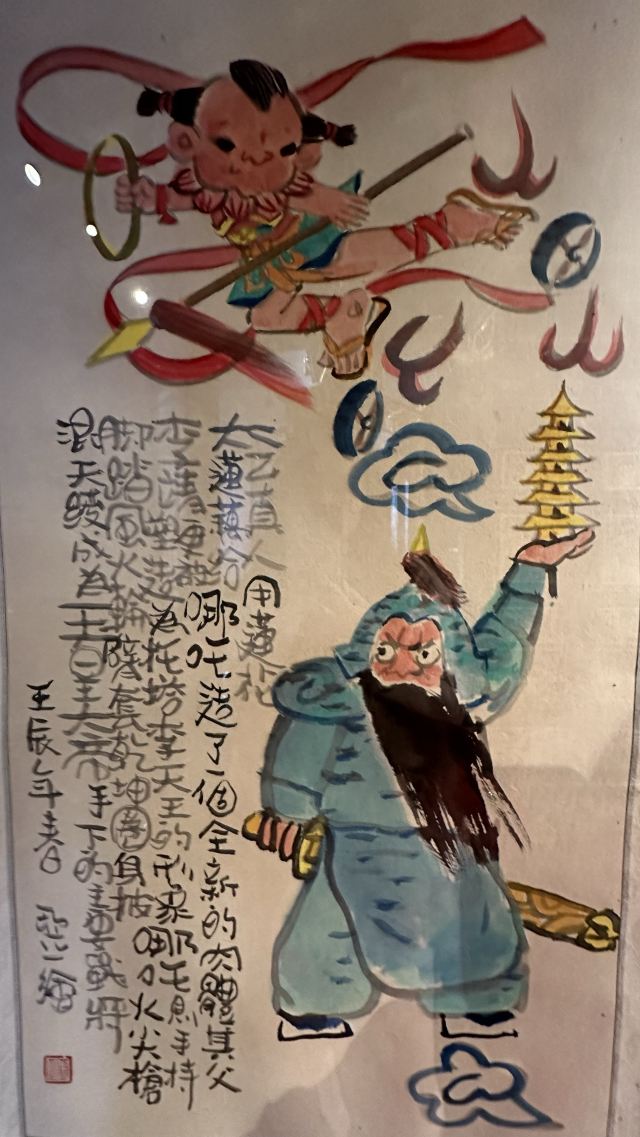 太乙真人用蓮花
蓮藕給哪吒造了一個全新的肉體其父
李靖更被塑造為托塔李天王的形象哪吒則手持
火尖槍
腳踏風火輪臂套乾坤圈身披
混天綾成為玉皇大帝手下的戰將
壬辰年春
繪